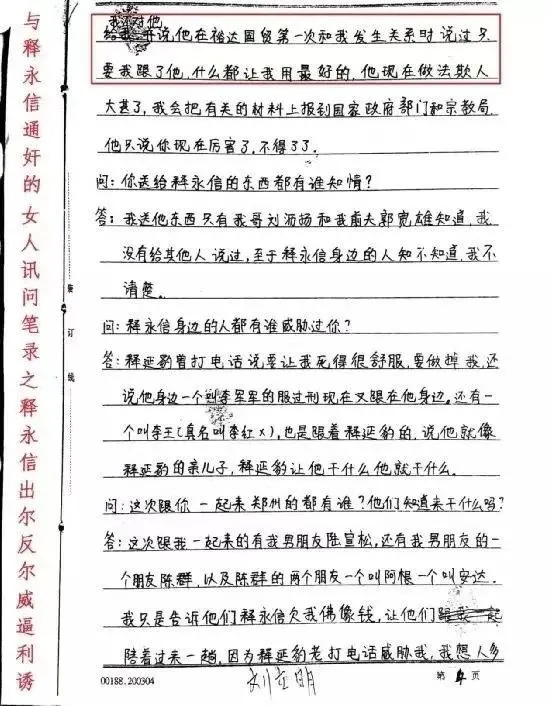 与释永信通奸的女人讯问笔录之释永信出尔反尔威逼利诱
订
线
我还对他
说他在裕达国贸第一次和我发生关系时说过只
要我跟了他,什么都让我用最好的,他现在做法欺人
太甚了,我会把有关的材料上报到国家政府部门和宗教局,
他只说你现在厉害了,不得了了。
问:你送给释永信的东西都有谁知情?
答:我送他东西只有我哥刘沥扬和我前夫郭宽雄知道,我
没有给其他人说过,至于释永信身边的人知不知道,我不
清楚。
问:释永信身边的人都有谁威胁过你?
答:释延豹曾打电话说要让我死得很舒服,要做掉我,还
说他身边一个叫李军军的服过刑现在又跟在他身边。还有一
个叫李王(真名叫李红x),也是跟着释延豹的,说他就像
释延豹的亲儿子,释延豹让他干什么他就干什么。
问:这次跟你一起来郑州的都有谁?他们知道来干什么吗?
答:这次跟我一起来的有我男朋友陆宣松,还有我男朋友的一
个朋友陈群,以及陈群的两个朋友一个叫阿根一个叫安达。
我只是告诉他们释永信欠我佛像钱,让他们跟我一起
陪着过来一趟,因为释延豹老打电话威胁我,我想人多
00188.200304
第4页